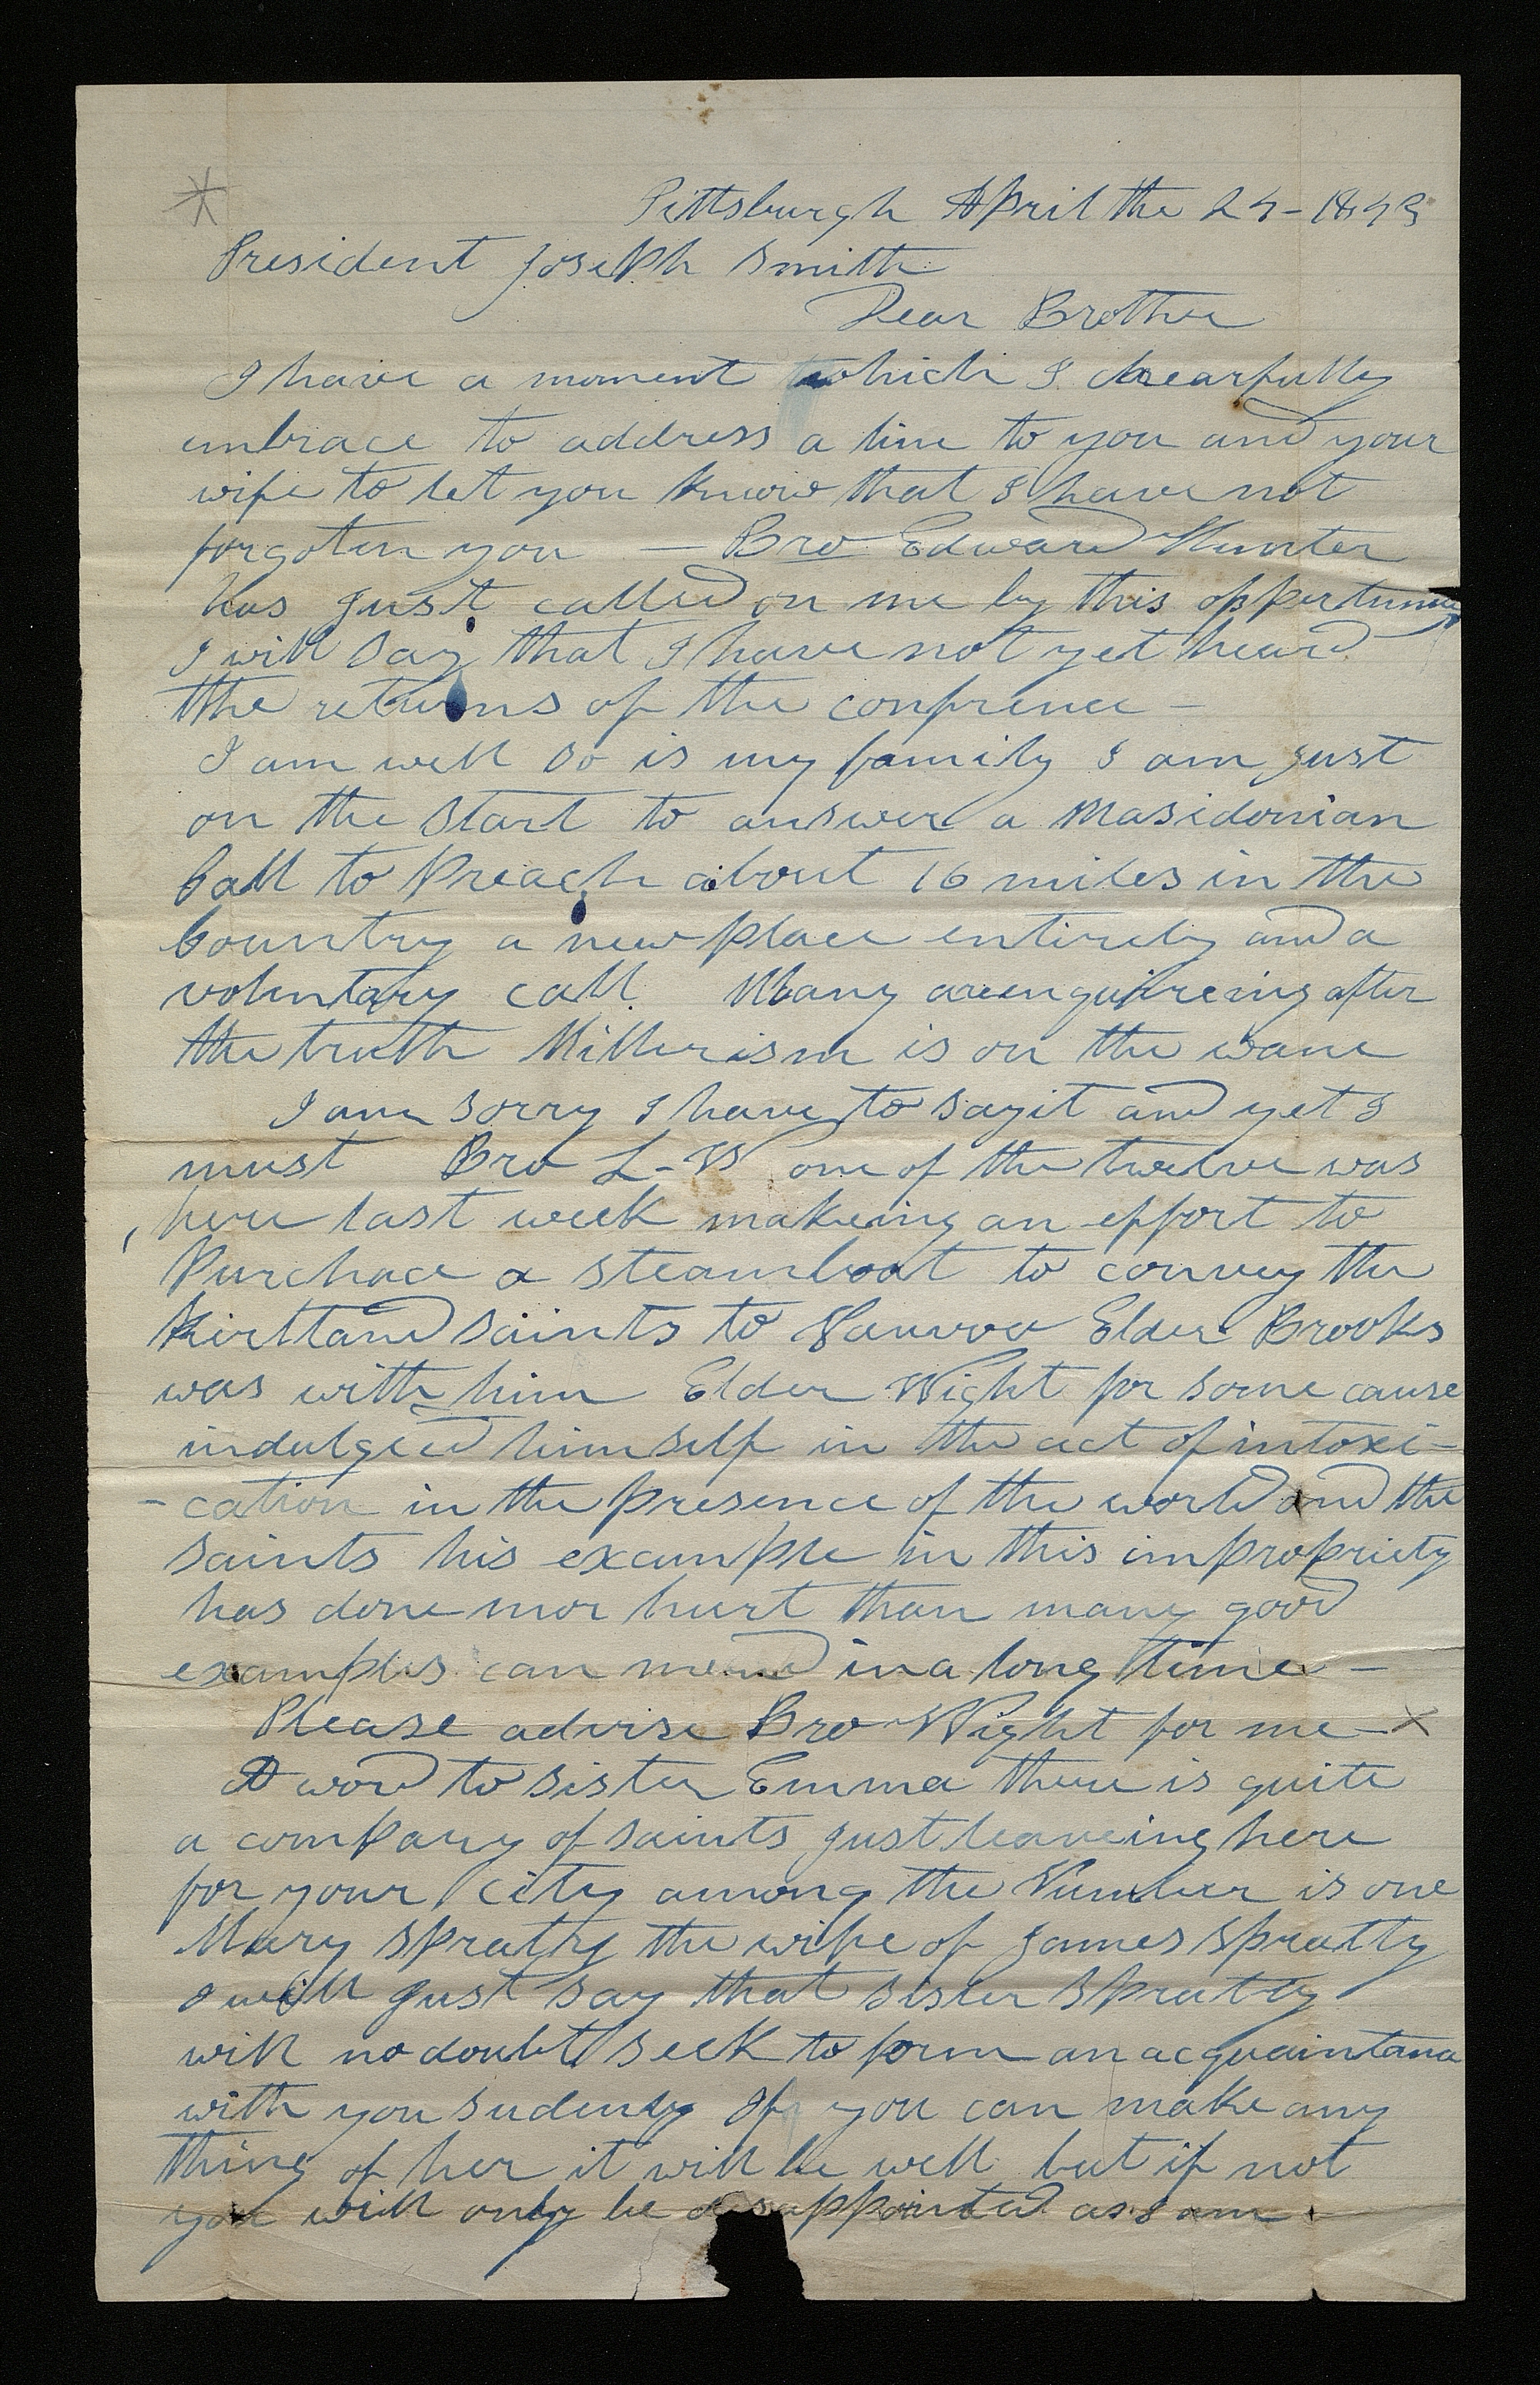 Pittsburgh April the 24 - 1843
President Joseph Smith
Dear Brother
I have a moment which I chearfully
embrace to address a line to you and your
wife to let you know that I have not
forgoten you — Bro Edward Hunter
has just called on me by this oppertunity
I will say that I have not yet heard
the returns of the confrence -
I am well so is my family I am just
on the start to answer a Masidonian
Call to Preach about 16 miles in the
Country a new place entirely and a
voluntary call. Many are enquireing after
the truth Millerism is on the wane
I am sorry I have to say it and yet I
must Bro L - W one of the twelve was
here last week makeing an effort to
Purchace a steamboat to convey the
Kirtland saints to Nauvoo Elder Brooks
was with him Elder Wight for some cause
indulged himself in the act of intoxi-
-cation in the presence of the world and the
saints his example in this impropriety
has done mor hurt than many good
examples can mend in a long time -
Please advise Bro Wight for me - X
A word to sister Emma there is quite
a company of saints just leaveing here
for your city among the Number is one
Mary Spratty the wife of James Spratty
I will just say that sister Spratty
will no doubt seek to form an acquaintance
with you sudenly If you can make any
thing of her it will be well but if not
you will only be disappointed as I am.